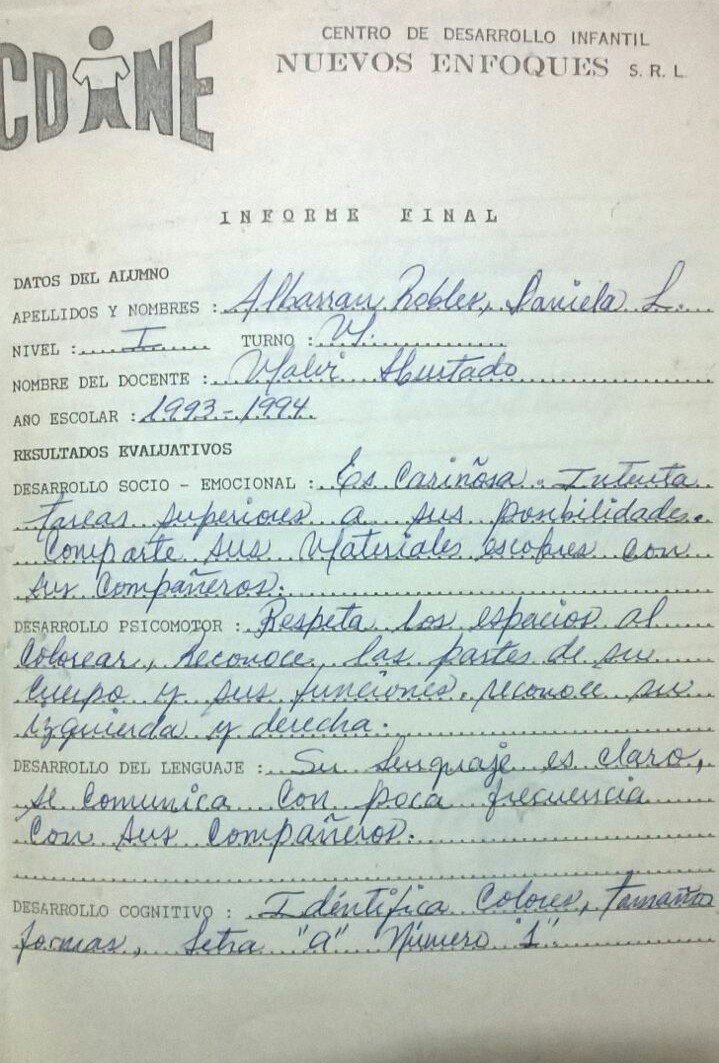 CDINE
CENTRO DE DESARROLLO INFANTIL
NUEVOS ENFOQUES S. R. L
INFORME FINAL
DATOS DEL ALUMNO
APELLIDOS Y NOMBRES : Albarran Robles, Daniela L.
NIVEL : I TURNO : M.
NOMBRE DEL DOCENTE : Malvi Hurtado
AÑO ESCOLAR : 1993-1994.
RESULTADOS EVALUATIVOS
DESARROLLO SOCIO - EMOCIONAL : Es Cariñosa. Intenta
tareas superiores a sus posibilidades.
Comparte sus Materiales escolares con
sus compañeros.
DESARROLLO PSICOMOTOR : Respeta los espacios al
Colorear, Reconoce las partes de su
Cuerpo y sus funciones. reconoce su
izquierda y derecha.
DESARROLLO DEL LENGUAJE : Su lenguaje es claro,
se comunica con poca frecuencia
con sus compañeros.
DESARROLLO COGNITIVO : Idéntifica Colores, tamaños
formas, letra "a" Número "1".